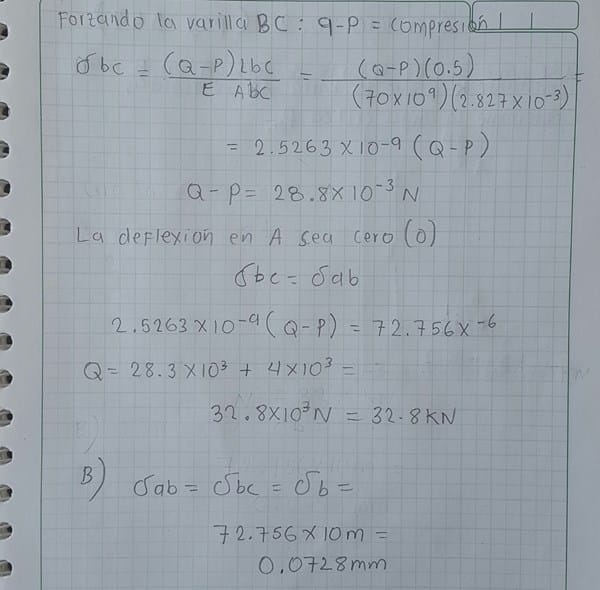 Forzando la varilla BC: q-P = compresión
δbc = (Q-P) Lbc / E Abc = (Q-P)(0.5) / (70×10⁹)(2.827×10⁻³) =
= 2.5263 × 10⁻⁹ (Q-P)
Q-P = 28.8×10⁻³ N
La deflexion en A sea cero (0)
δbc = δab
2.5263 × 10⁻⁹ (Q-P) = 72.756 x⁻⁶
Q = 28.3 × 10³ + 4×10³ =
32.8×10³ N = 32.8 KN
B) δab = δbc = δb =
72.756 × 10 m =
0.0728 mm